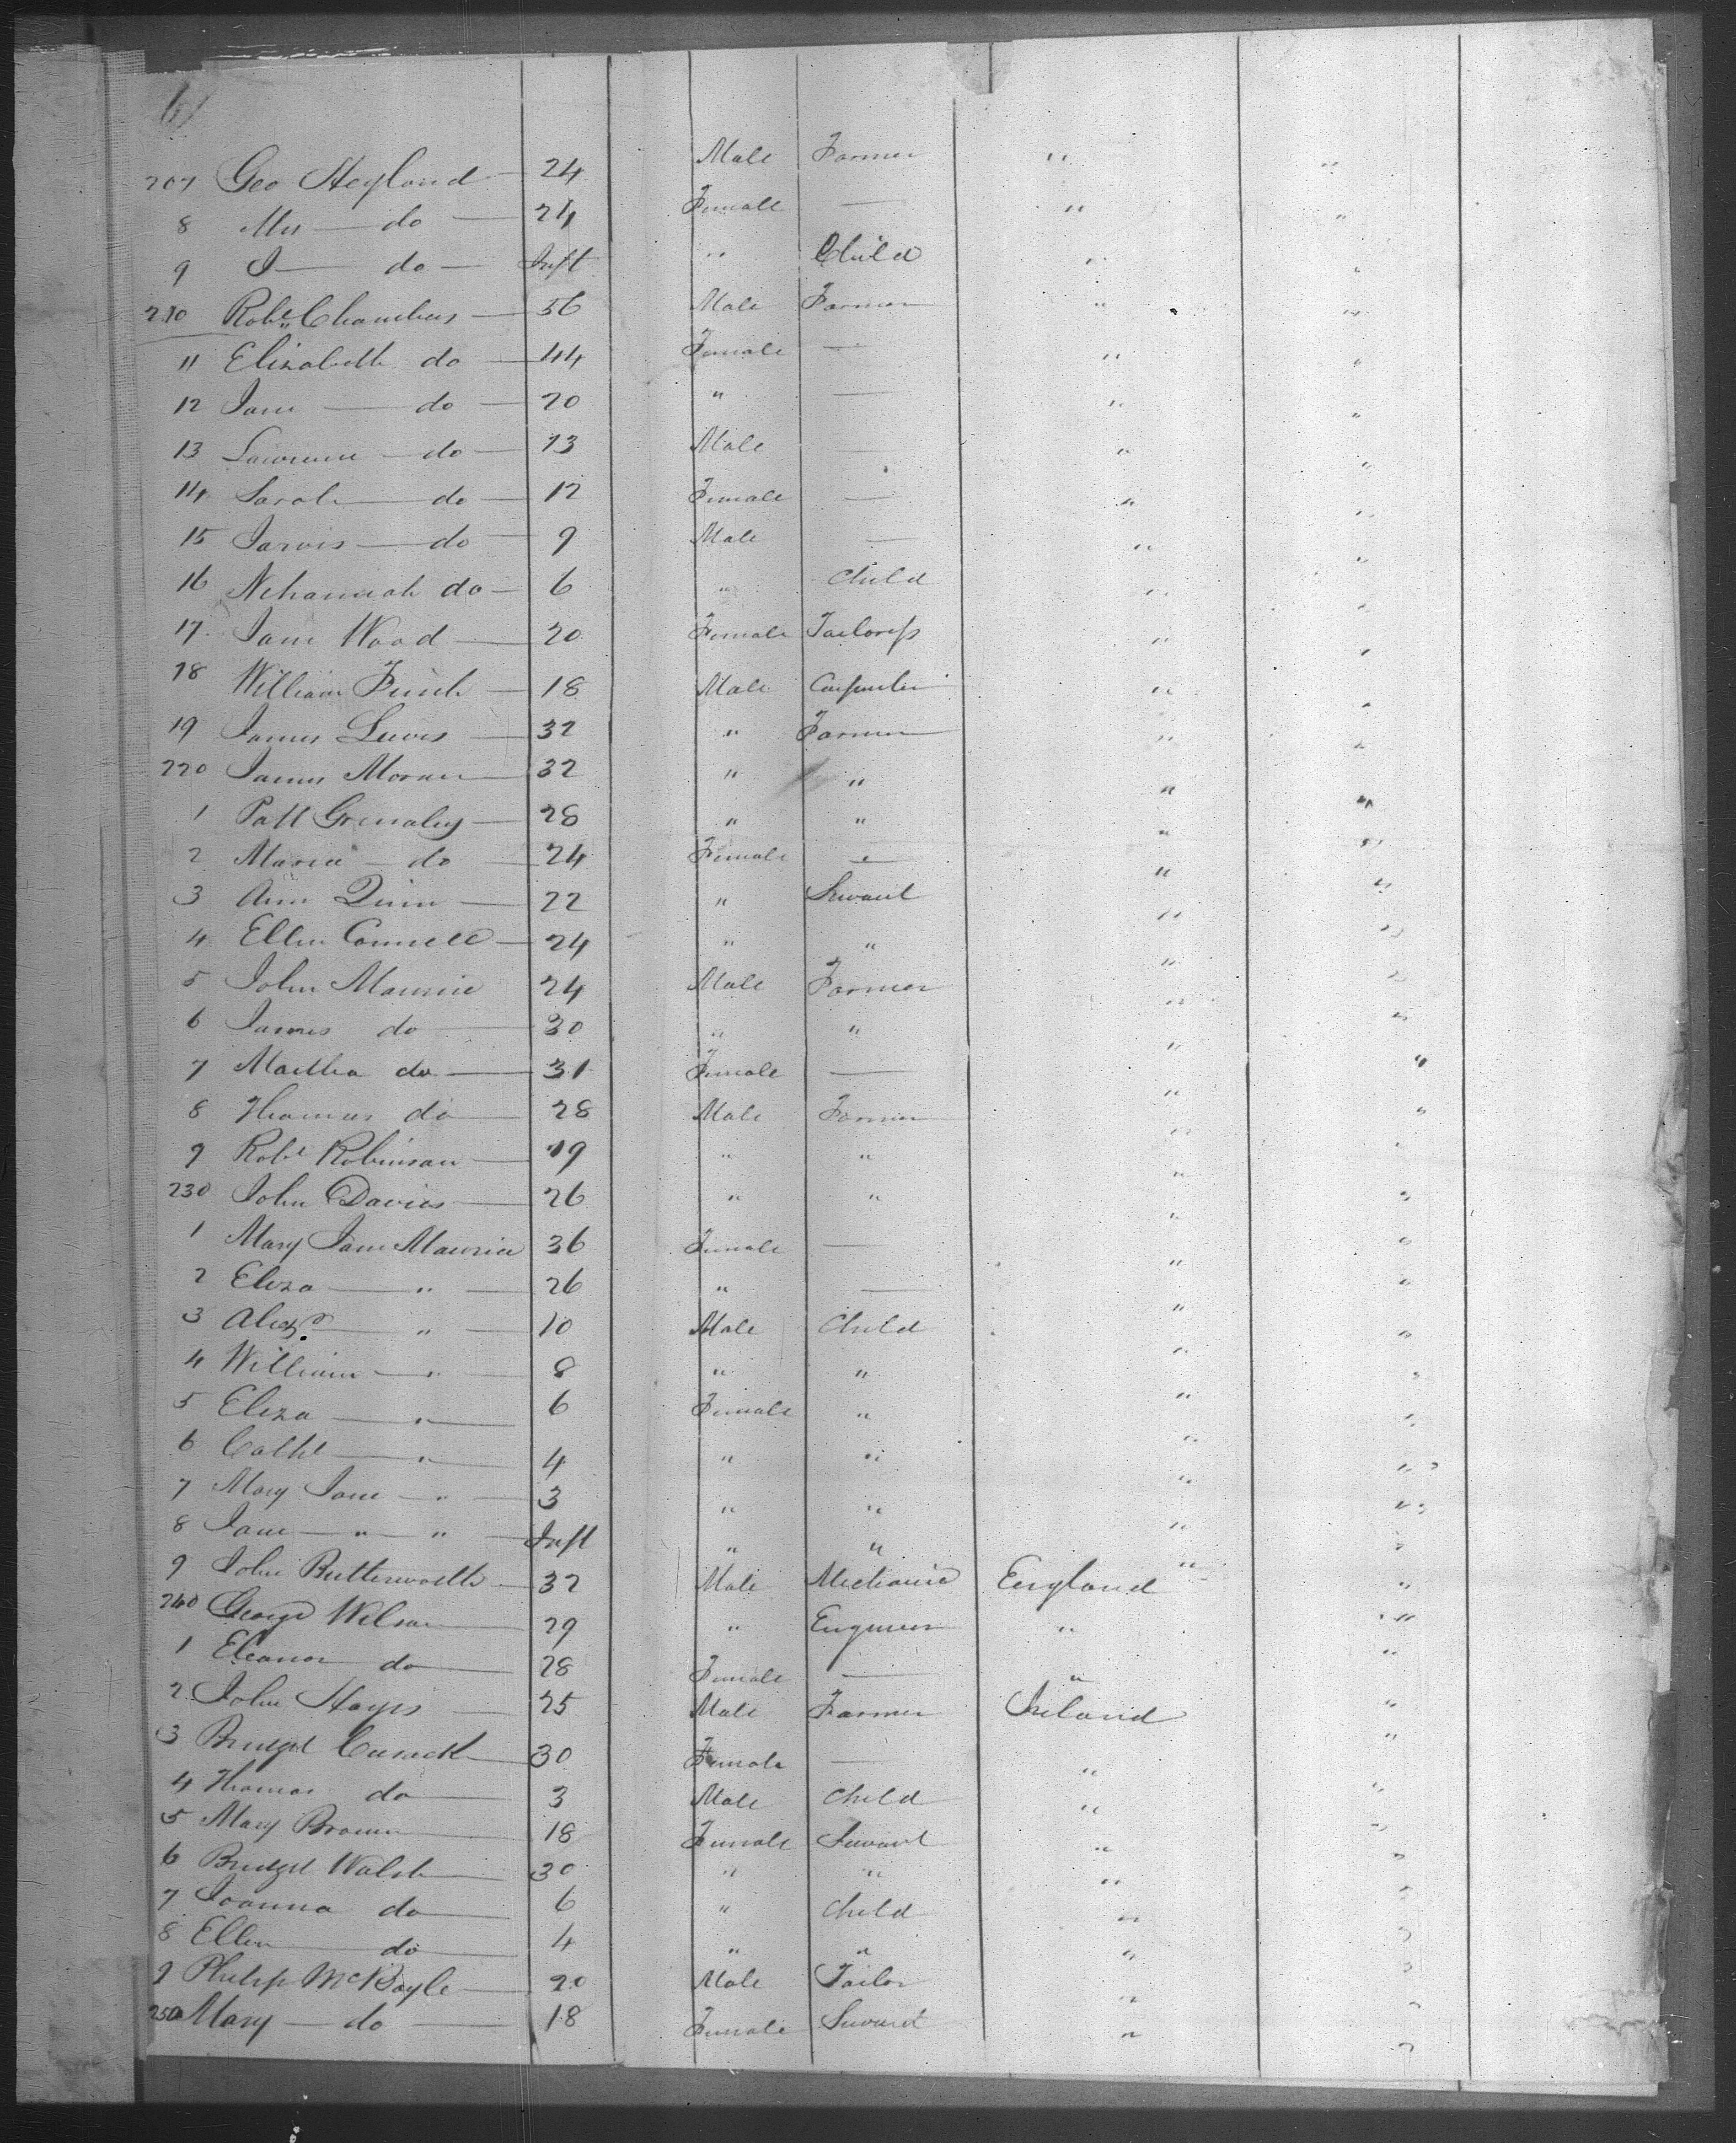 6)
207 Geo Heyland — 24 Male Farmer " "
8 Mrs — do — 24 Female — " "
9 J — do — Inft " Child " "
210 Robt Chambers — 56 Male Farmer " "
11 Elizabeth do — 44 Female — " "
12 Jane — do — 20 " — " "
13 Lawrence — do — 13 Male — " "
14 Sarah — do — 12 Female — " "
15 Jarvis — do — 9 Male — " "
16 Nehamiah do — 6 " Child " "
17 Jane Wood — 20 Female Tailoress " "
18 William Finch — 18 Male Carpenter " "
19 James Lewis — 32 " Farmer " "
220 James Moran — 32 " " " "
1 Patt — 28 " " " "
2 Maria — do — 24 Female — " "
3 Ann Quinn — 22 " Servant " "
4 Ellen Connell — 24 " " " "
5 John Maurice 24 Male Farmer " "
6 James do — 30 " " " "
7 Martha do — 31 Female — " "
8 Thomas do — 28 Male Farmer " "
9 Robt Robinson — 19 " " " "
230 John Davies — 26 " " " "
1 Mary Jane Maurice 36 Female — " "
2 Eliza — " — 26 " — " "
3 Alexr — " — 10 Male Child " "
4 William — " — 8 " " " "
5 Eliza — " — 6 Female " " "
6 Cathe — " — 4 " " " "
7 Mary Jane — " — 3 " " " "
8 Jane — " — " — Inft " " " "
9 John Butterworth — 32 Male Mechanic England " "
240 George Wilson — 29 " Engineer " "
1 Eleanor do — 28 Female — " "
2 John Hayes — 25 Male Farmer Ireland "
3 Bridget Cusack — 30 Female — " "
4 Thomas do — 3 Male Child " "
5 Mary Brown — 18 Female Servant " "
6 Bridget Walsh — 30 " " " "
7 Joanna do — 6 " Child " "
8 Ellen — do — 4 " " " "
9 Philip McBoyle — 20 Male Tailor " "
250 Mary — do — 18 Female Servant " "